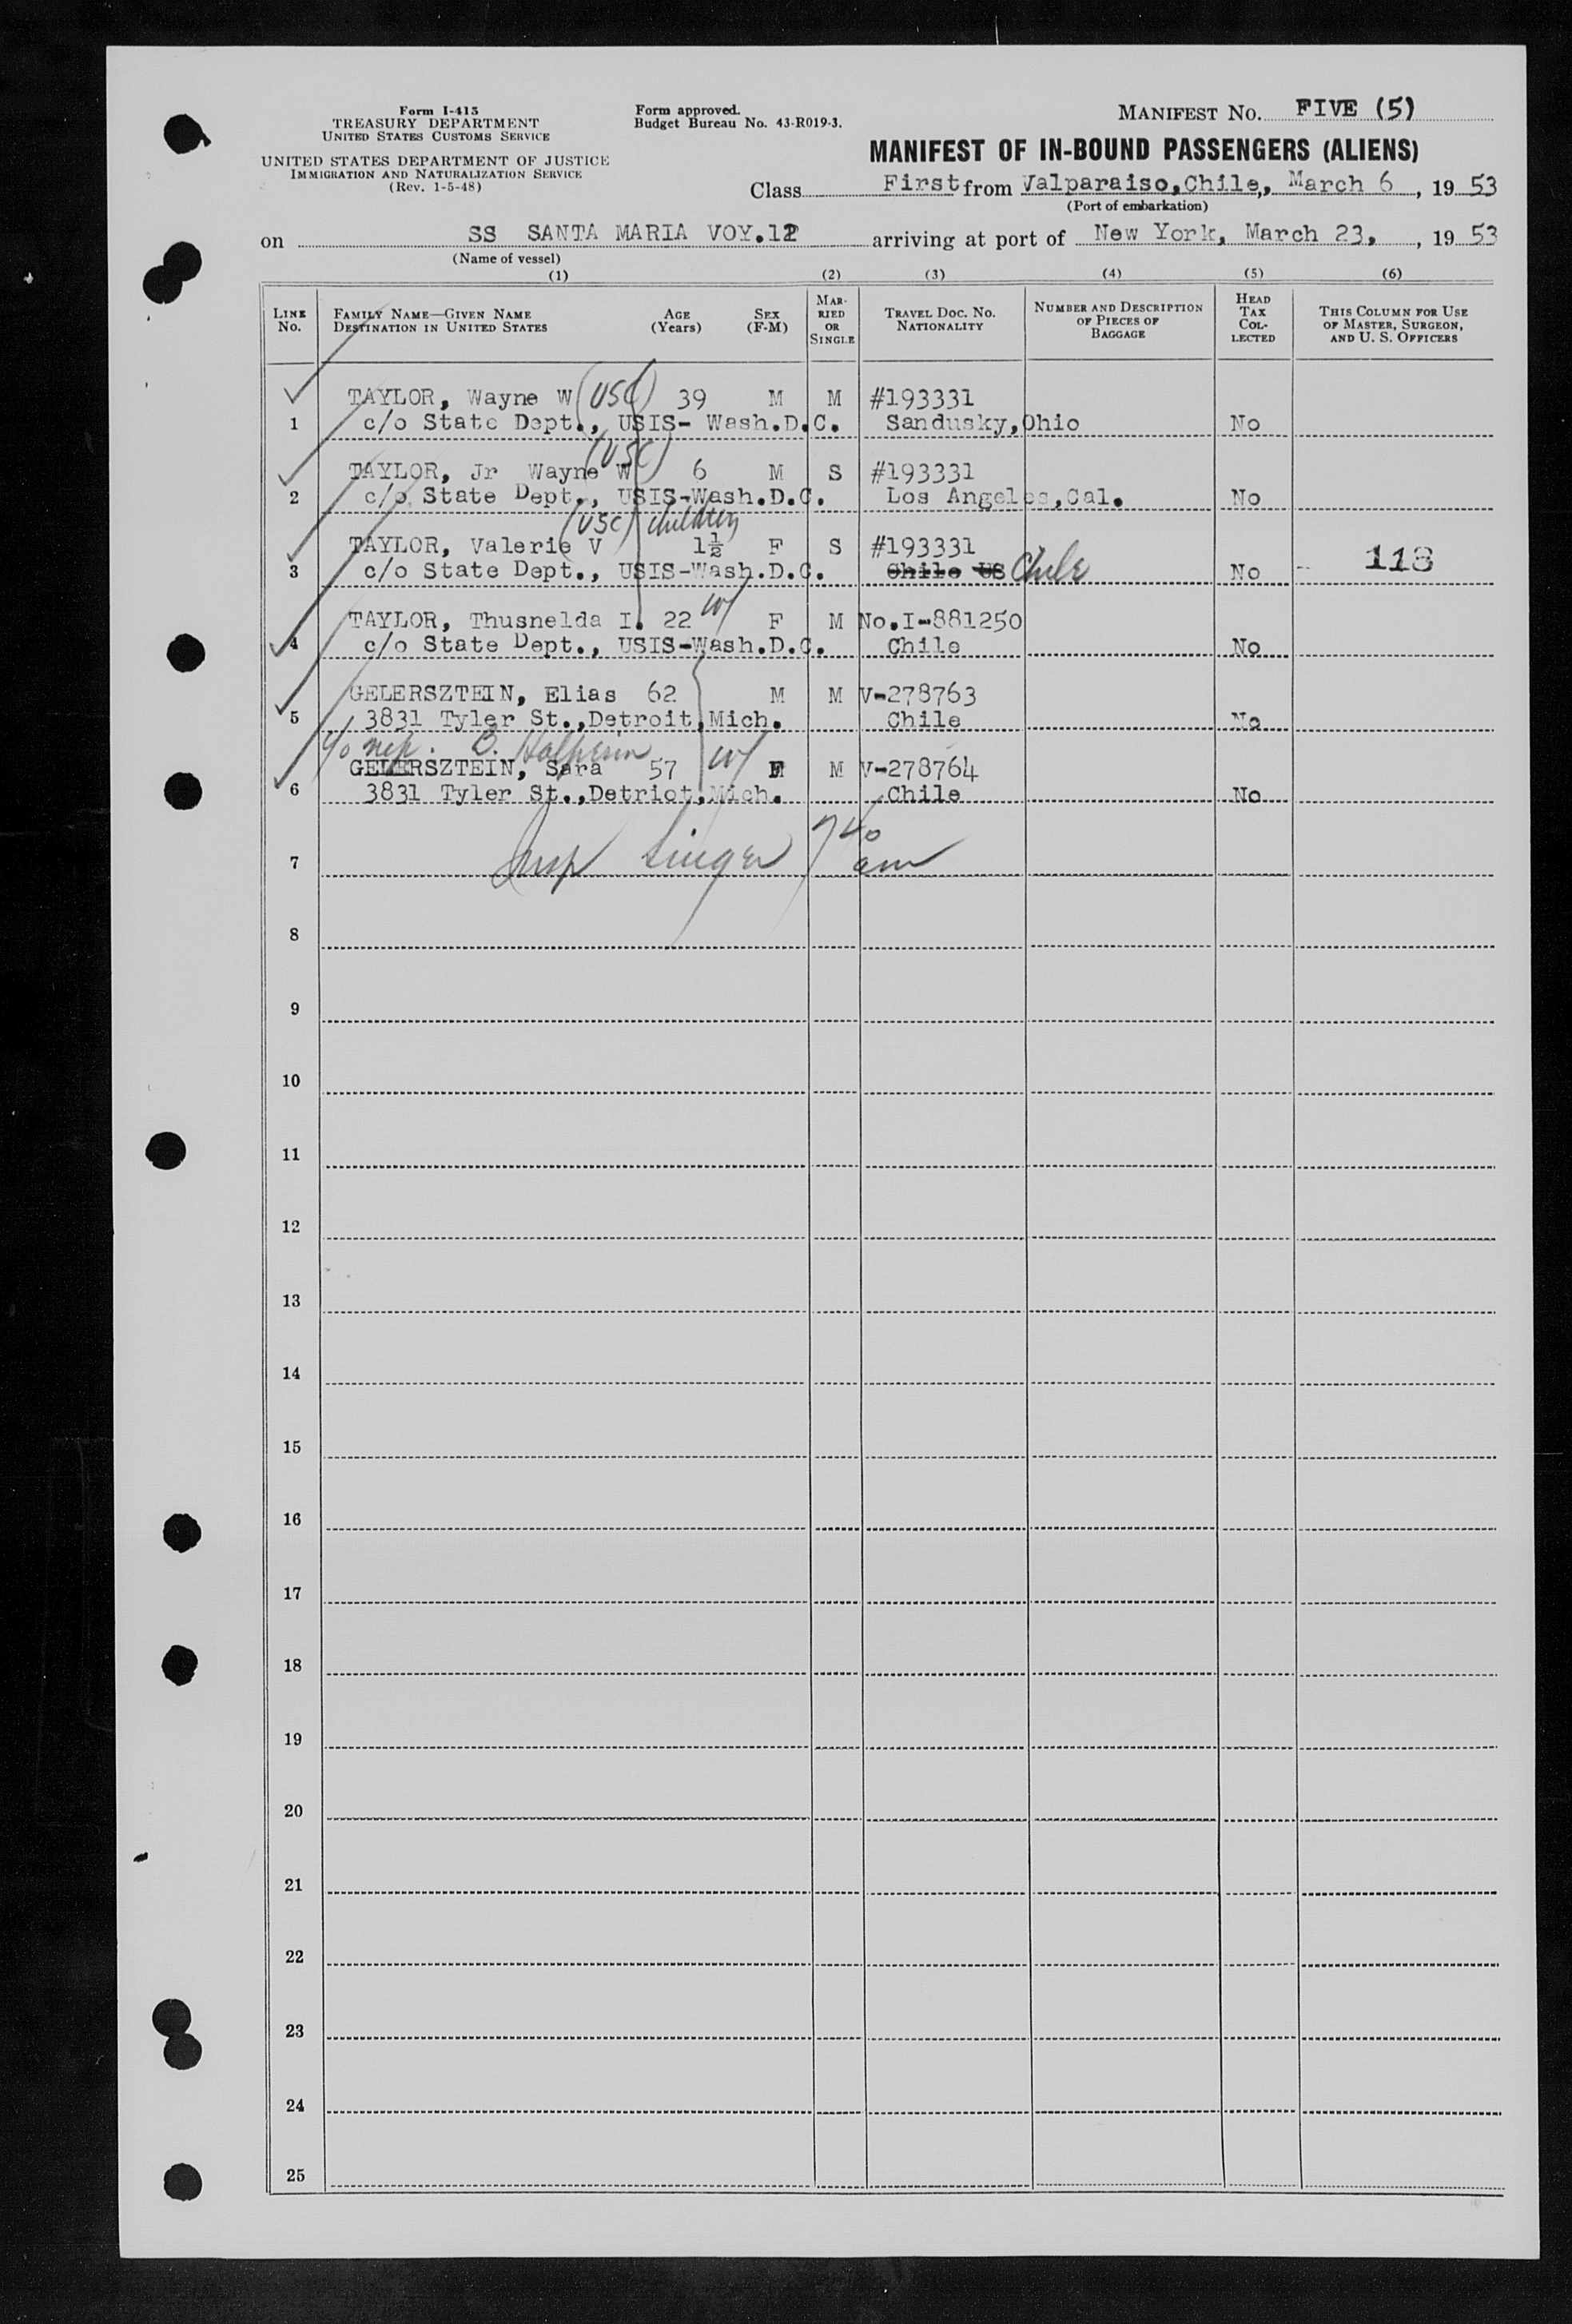 Form I-415
TREASURY DEPARTMENT
UNITED STATES CUSTOMS SERVICE
UNITED STATES DEPARTMENT OF JUSTICE
IMMIGRATION AND NATURALIZATION SERVICE
(Rev. 1-5-48)
Form approved.
Budget Bureau No. 43-R019-3.
MANIFEST NO. FIVE (5)
MANIFEST OF IN-BOUND PASSENGERS (ALIENS)
Class First from Valparaiso, Chile, March 6, 1953
(Port of embarkation)
on SS SANTA MARIA VOY.12 arriving at port of New York, March 23, 1953
(Name of vessel)
(1) (2) (3) (4) (5) (6)
LINE No. FAMILY NAME—GIVEN NAME DESTINATION IN UNITED STATES AGE (Years) SEX (F-M) MARRIED OR SINGLE TRAVEL DOC. NO. NATIONALITY NUMBER AND DESCRIPTION OF PIECES OF BAGGAGE HEAD TAX COLLECTED THIS COLUMN FOR USE OF MASTER, SURGEON, AND U. S. OFFICERS
TAYLOR, Wayne W (USC) 39 M M #193331
1 c/o State Dept., USIS- Wash.D.C. Sandusky,Ohio No
TAYLOR, Jr Wayne W (USC) 6 M S #193331
2 c/o State Dept., USIS-Wash.D.C. Los Angeles,Cal. No
(USC) children
TAYLOR, Valerie V 1½ F S #193331
3 c/o State Dept., USIS-Wash.D.C. Chile US Chile No 118
TAYLOR, Thusnelda I. 22 W/ F M No.I-881250
4 c/o State Dept., USIS-Wash.D.C. Chile No
GELERSZTEIN, Elias 62 M M V-278763
5 3831 Tyler St.,Detroit,Mich. Chile No
c/o nep. B. Halperin
GELERSZTEIN, Sara 57 W/ F M V-278764
6 3831 Tyler St.,Detriot,Mich. Chile No
7 Insp Singer 740 am
8
9
10
11
12
13
14
15
16
17
18
19
20
21
22
23
24
25